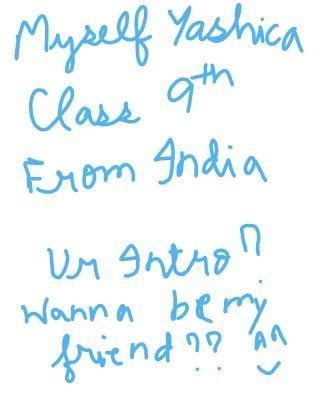 Myself Yashica
Class 9th
From India
Ur Intro?
Wanna be my
friend?? ^^